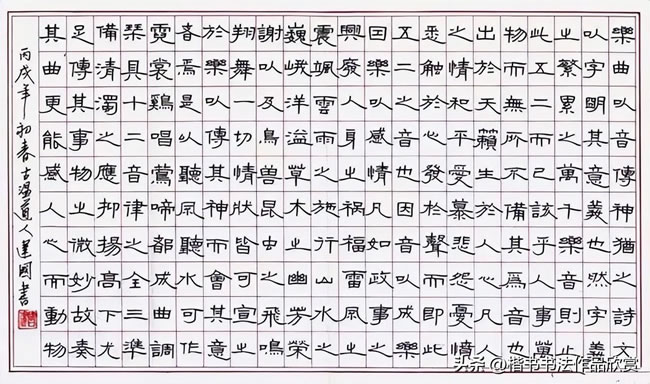 樂曲以音傳神猶之詩文
以字明其意義也然字義
之繁累之萬千樂音則止
此五二而已該乎人事萬
物而無所不備其為音也
出於天籟生於人心凡人
之情和平愛慕悲怨憂憤
悉觸於心發於聲而即此
五二之音也因音以成樂
因樂以感情凡如政事之
興廢人身之禍福雷風之
震颯雲雨之施行山水之
巍峨洋溢草木之幽芳榮
謝以及鳥獸昆虫之飛鳴
翔舞一切情狀皆可宣之
於樂以傳其神而會其意
者焉是以聽風聽水可作
霓裳鷄唱鶯啼都成曲調
琴具十二音律之全三準
備清濁之應抑揚高下尤
足傳其事物之微妙故奏
其曲更能感人心而動物
丙戌年初春古湯道人建國書
头条 @楷书书法作品欣赏